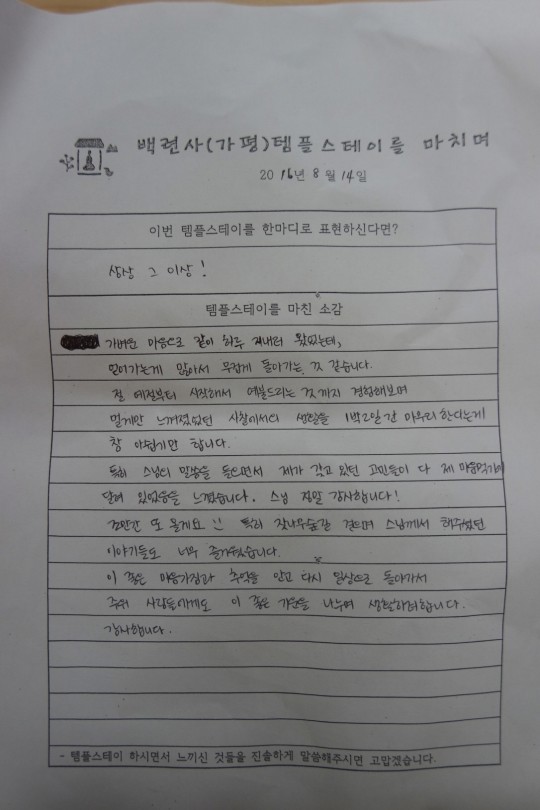 백련사(가평)템플스테이를 마치며
2016년 8월 14일
이번 템플스테이를 한마디로 표현하신다면?
상상 그 이상!
템플스테이를 마친 소감
가벼운 마음으로 같이 하루 지내러 왔었는데,
얻어가는게 많아서 무겁게 돌아가는 것 같습니다.
절 예절부터 시작해서 예불드리는 것까지 경험해보며
멀게만 느껴졌었던 사찰에서의 생활을 1박2일간 마무리 한다는게
참 아쉽기만 합니다.
특히 스님의 말씀을 들으면서 제가 갖고 있던 고민들이 다 제 마음먹기에
달려 있었음을 느꼈습니다. 스님 정말 감사합니다!
조만간 또 올게요 :) 특히 잣나무숲길 걸으며 스님께서 해주셨던
이야기들도 너무 즐거웠습니다.
이 좋은 마음가짐과 추억을 안고 다시 일상으로 돌아가서
주위 사람들에게도 이 좋은 기운을 나누며 생활하려합니다.
감사합니다.
- 템플스테이 하시면서 느끼신 것들을 진솔하게 말씀해주시면 고맙겠습니다.